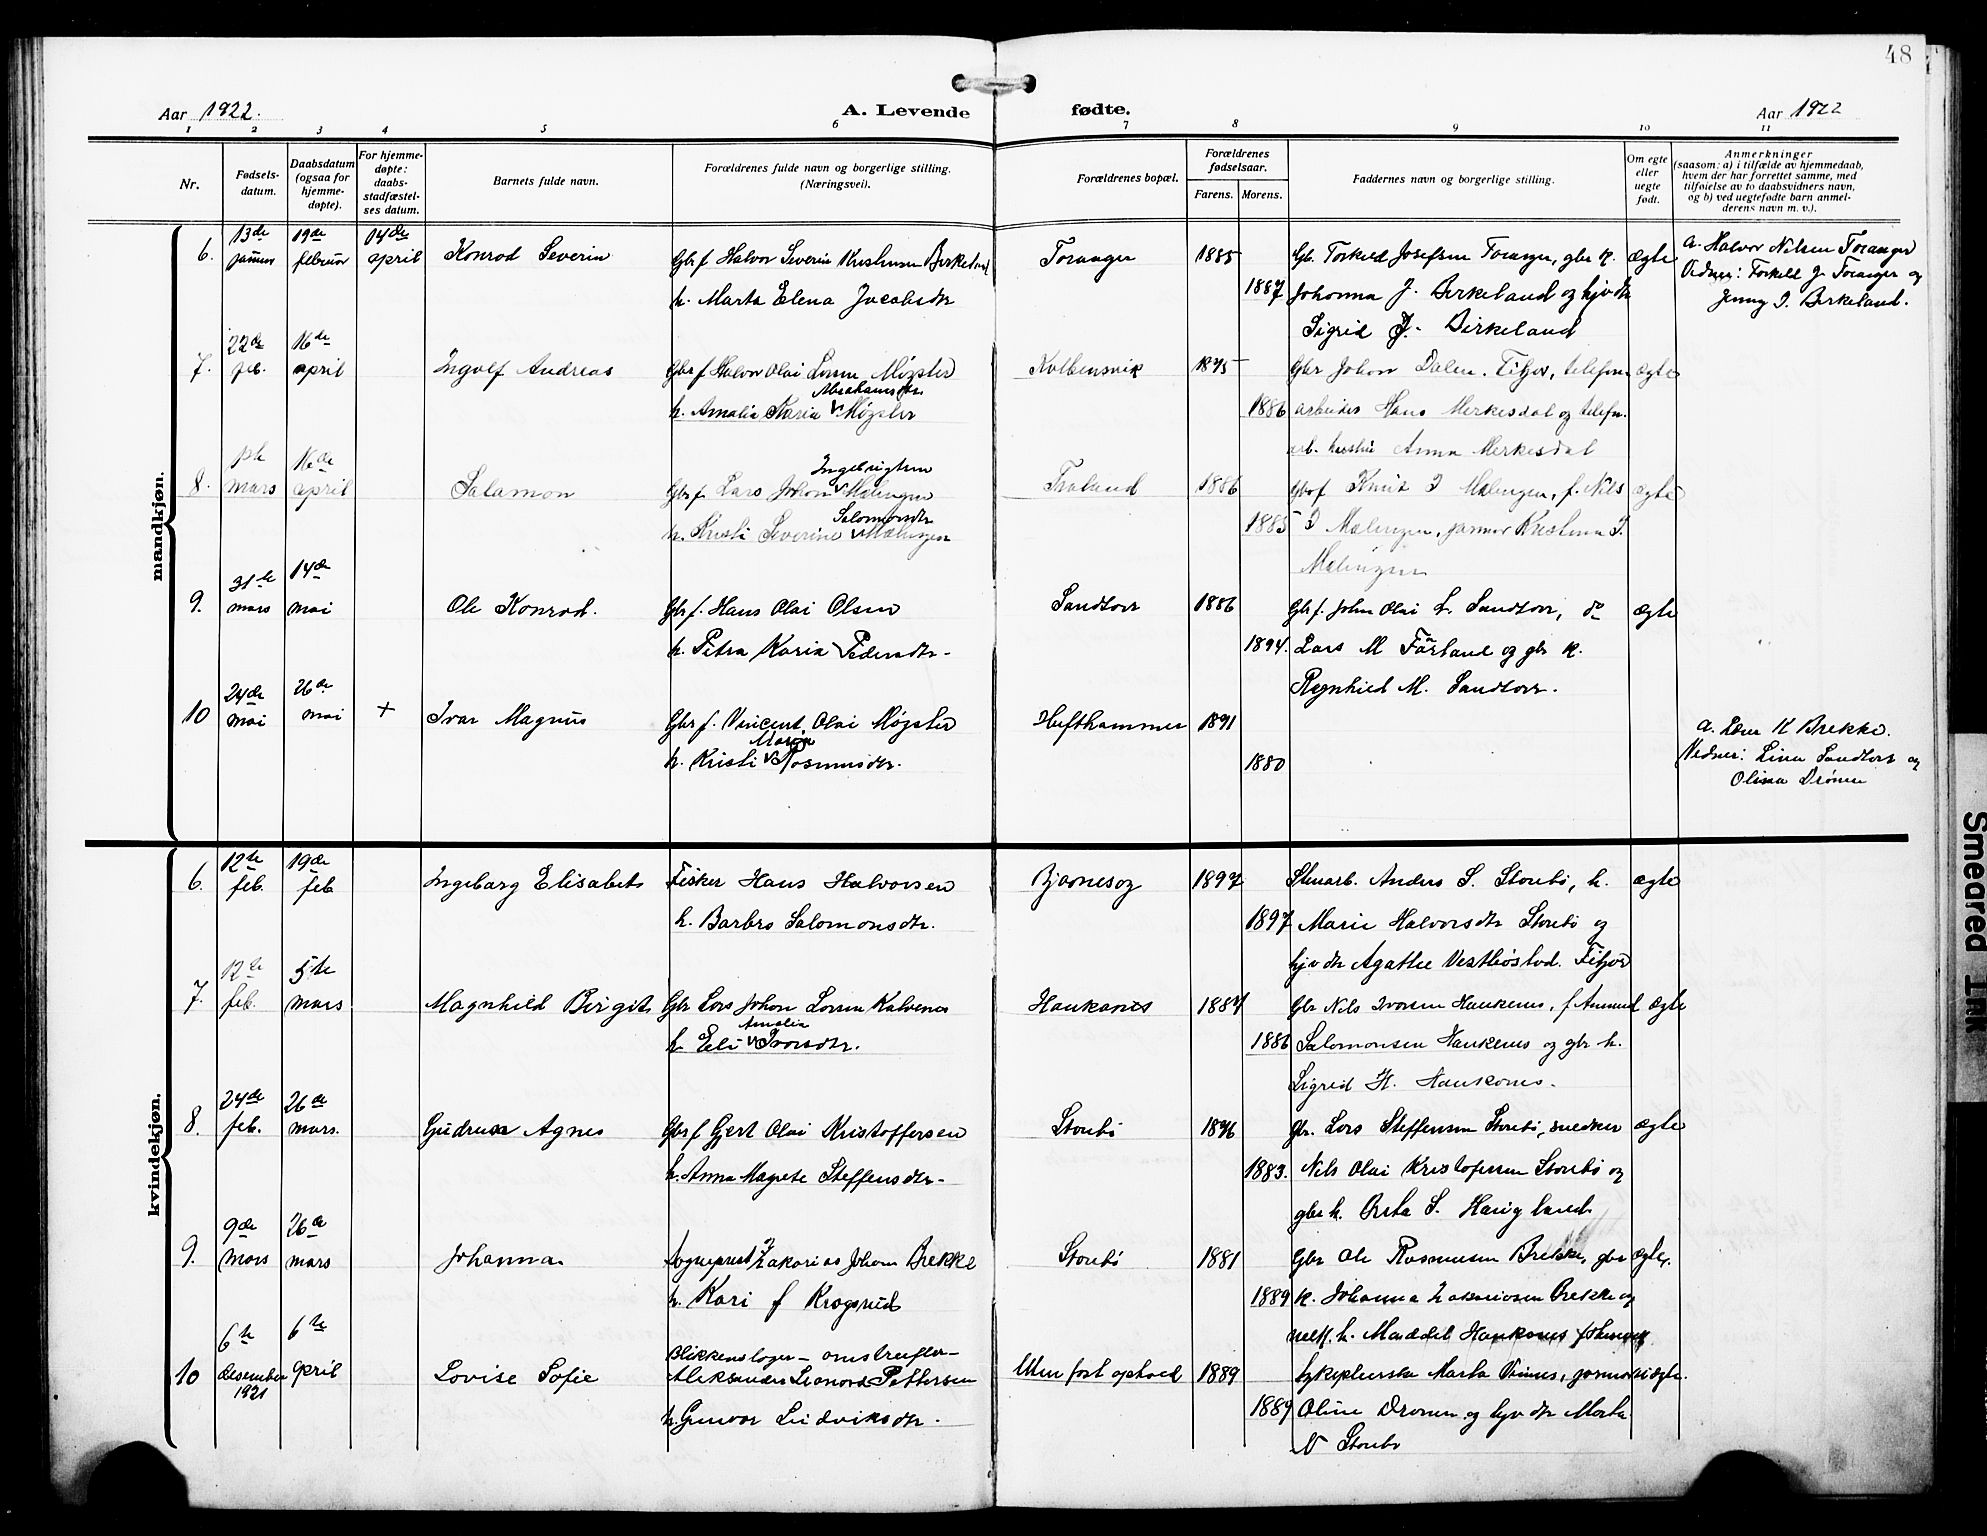 48
Aar 1922.
A. Levende fødte.
Aar 1922
1 2 3 4 5 6 7 8 9 10 11
Nr.
Fødsels-
datum.
Daabsdatum
(ogsaa for
hjemme-
døpte).
For hjemme-
døpte:
daabs-
stadfæstel-
ses datum.
Barnets fulde navn.
Forældrenes fulde navn og borgerlige stilling.
(Næringsvei).
Forældrenes bopæl.
Forældrenes
fødselsaar.
Farens. Morens.
Faddernes navn og borgerlige stilling.
Om egte
eller
uegte
født.
Anmerkninger
(saasom: a) i tilfælde av hjemmedaab,
hvem der har forrettet samme, med
tilføielse av to daabsvidners navn,
og b) ved uegtefødte barn anmel-
derens navn m. v.).
mandkjøn.
6. 13de januar 19de februar 14de april Konrod Severin
Gbr f Halvor Severin Kristensen Birkeland
h. Marta Elena Jacobsdtr
Toranger 1885 1887
Gb. Torkild Josefsen Toranger, gbr k.
Johanna J. Birkeland og hjv dtr
Sigrid J. Birkeland
ægte
a. Halvor Nilsen Toranger
Vidner: Torkild J Toranger og
Jenny J. Birkeland.
7. 22de feb. 16de april Ingolf Andreas
Gbr f Halvor Olai Larsen Møgster
Abrahamsdtr
h. Amalia Karia v Møgster
Kolbensvik 1875 1886
Gbr Johan Dalen. Fitjar, telefon
arbeider Hans Merkesdal og telefn.
arb. hustru Anna Merkesdal
ægte
8. 1ste mars 16de april Salamon
Ingebrigtsen
Gbr f. Lars Johan v Mælingen
Salomonsdtr
h. Kristi Severine v Mælingen
Træland 1886 1885
Gbr f Knut I Mælingen, f. Nils
I Mælingen, garnor Kristina I.
Mælingen
ægte
9. 31te mars 14de mai Ole Konrad.
Gbr f. Hans Olai Olsen
h. Petra Karia Pedersdtr-
Sandtorv 1886 1894.
Gbr f. John Olai L. Sandtorv, do
Lars M Færland og gbr k.
Ragnhild M. Sandtorv.
ægte
10 24de mai 26de mai + Ivar Magnus
Gbr f. Vincent Olai Møgster
Maria
h. Kristi v Rasmusdtr.
Hufthammer 1891 1880
a. Lærer K Brekke.
Vidner: Lina Sandtorv og
Olina Drønen
kvindekjøn.
6. 12te feb. 19de feb Ingeborg Elisabeth
Fisker Hans Halvorsen
h. Barbro Salomonsdtr.
Bjørnesøg 1897 1897
Stenarb. Anders S. Storebø, h.
Marie Halvorsdtr Storebø og
hjv dtr Agathe Vestbøstad. Fitjar
ægte
7. 12te feb. 5te mars Magnhild Birgit
Gbr Lars Johan Larsen Kalvenes
Amalia
h. Eli v Ivarsdtr.
Haukanes 1887 1886
Gbr Nils Ivarsen Haukenes, f Ammund
Salomonsen Haukenes og gbr h.
Sigrid H. Haukanes.
ægte
8. 24de feb. 26de mars. Gudrun Agnes
Gbr f Gjert Olai Kristoffersen
h. Anna Magrete Steffensdtr-
Storebø 1876 1883.
Gbr. Lars Steffensen Storebø, snedker
Nils Olai Kristofersen Storebø og
gbr h. Brita S. Haugland
ægte
9. 9de mars 26de mars Johanna
Sogneprest Zakarias Johan Brekke
h. Kari f Krogsrud
Storebø 1881 1889
Gbr Ole Rasmusen Brekke, gbr
k. Johanna Zakariasen Brekke og
h. Maddeli Haukanes
ægte.
10 6te desember 1921 6te april Lovise Sofie
Blikkenslager - omstreifer-
Aleksander Leonard Pettersen
h. Gunvor Ludviksdtr.
Uten fast ophold 1889 1889
Sykepleierske Marta Vinnes, garnor
Oline Drønen og hjv dtr Marta
N Storebø
uægte.
Smeared Ink